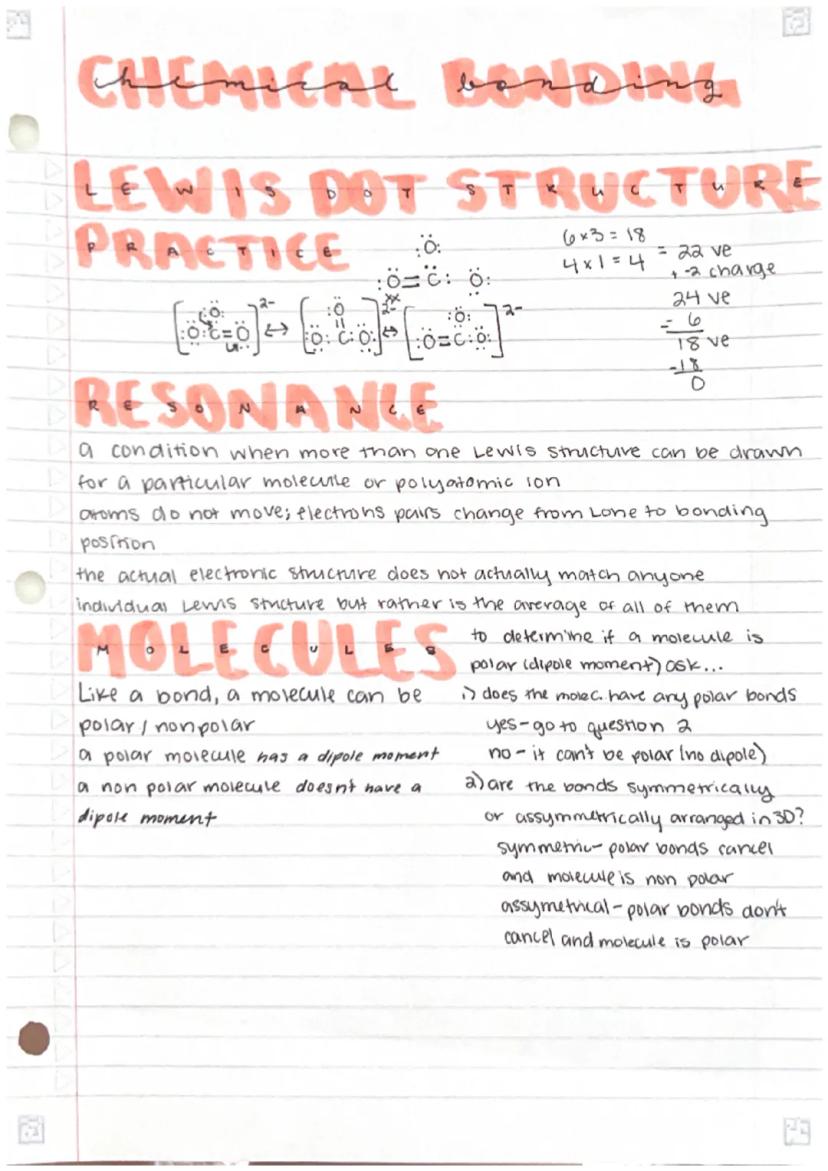 CHEMICAL BONDING
chemical bonding
LEWIS DOT STRUCTURE
PRACTICE
6x3 = 18
4x1 = 4 = 22 ve
+ -2 charge
24 ve
- 6
18 ve
-18
0
:Ö:
:Ö=C: Ö:
[:Ö: :Ö:C=Ö]2- ↔ [:Ö :Ö: C:Ö:]2- ↔ [:Ö: :Ö=C:Ö:]2-
RESONANCE
a condition when more than one Lewis structure can be drawn
for a particular molecule or polyatomic ion
atoms do not move; electrons pairs change from Lone to bonding
position
the actual electronic structure does not actually match anyone
individual Lewis structure but rather is the average of all of them
MOLECULES
Like a bond, a molecule can be
polar / nonpolar
a polar molecule has a dipole moment
a non polar molecule doesn't have a
dipole moment
to determine if a molecule is
polar (dipole moment) ask...
1) does the molec. have any polar bonds
yes - go to question 2
no - it can't be polar (no dipole)
2) are the bonds symmetrically
or assymmetrically arranged in 3D?
symmetric - polar bonds cancel
and molecule is non polar
assymetrical - polar bonds don't
cancel and molecule is polar